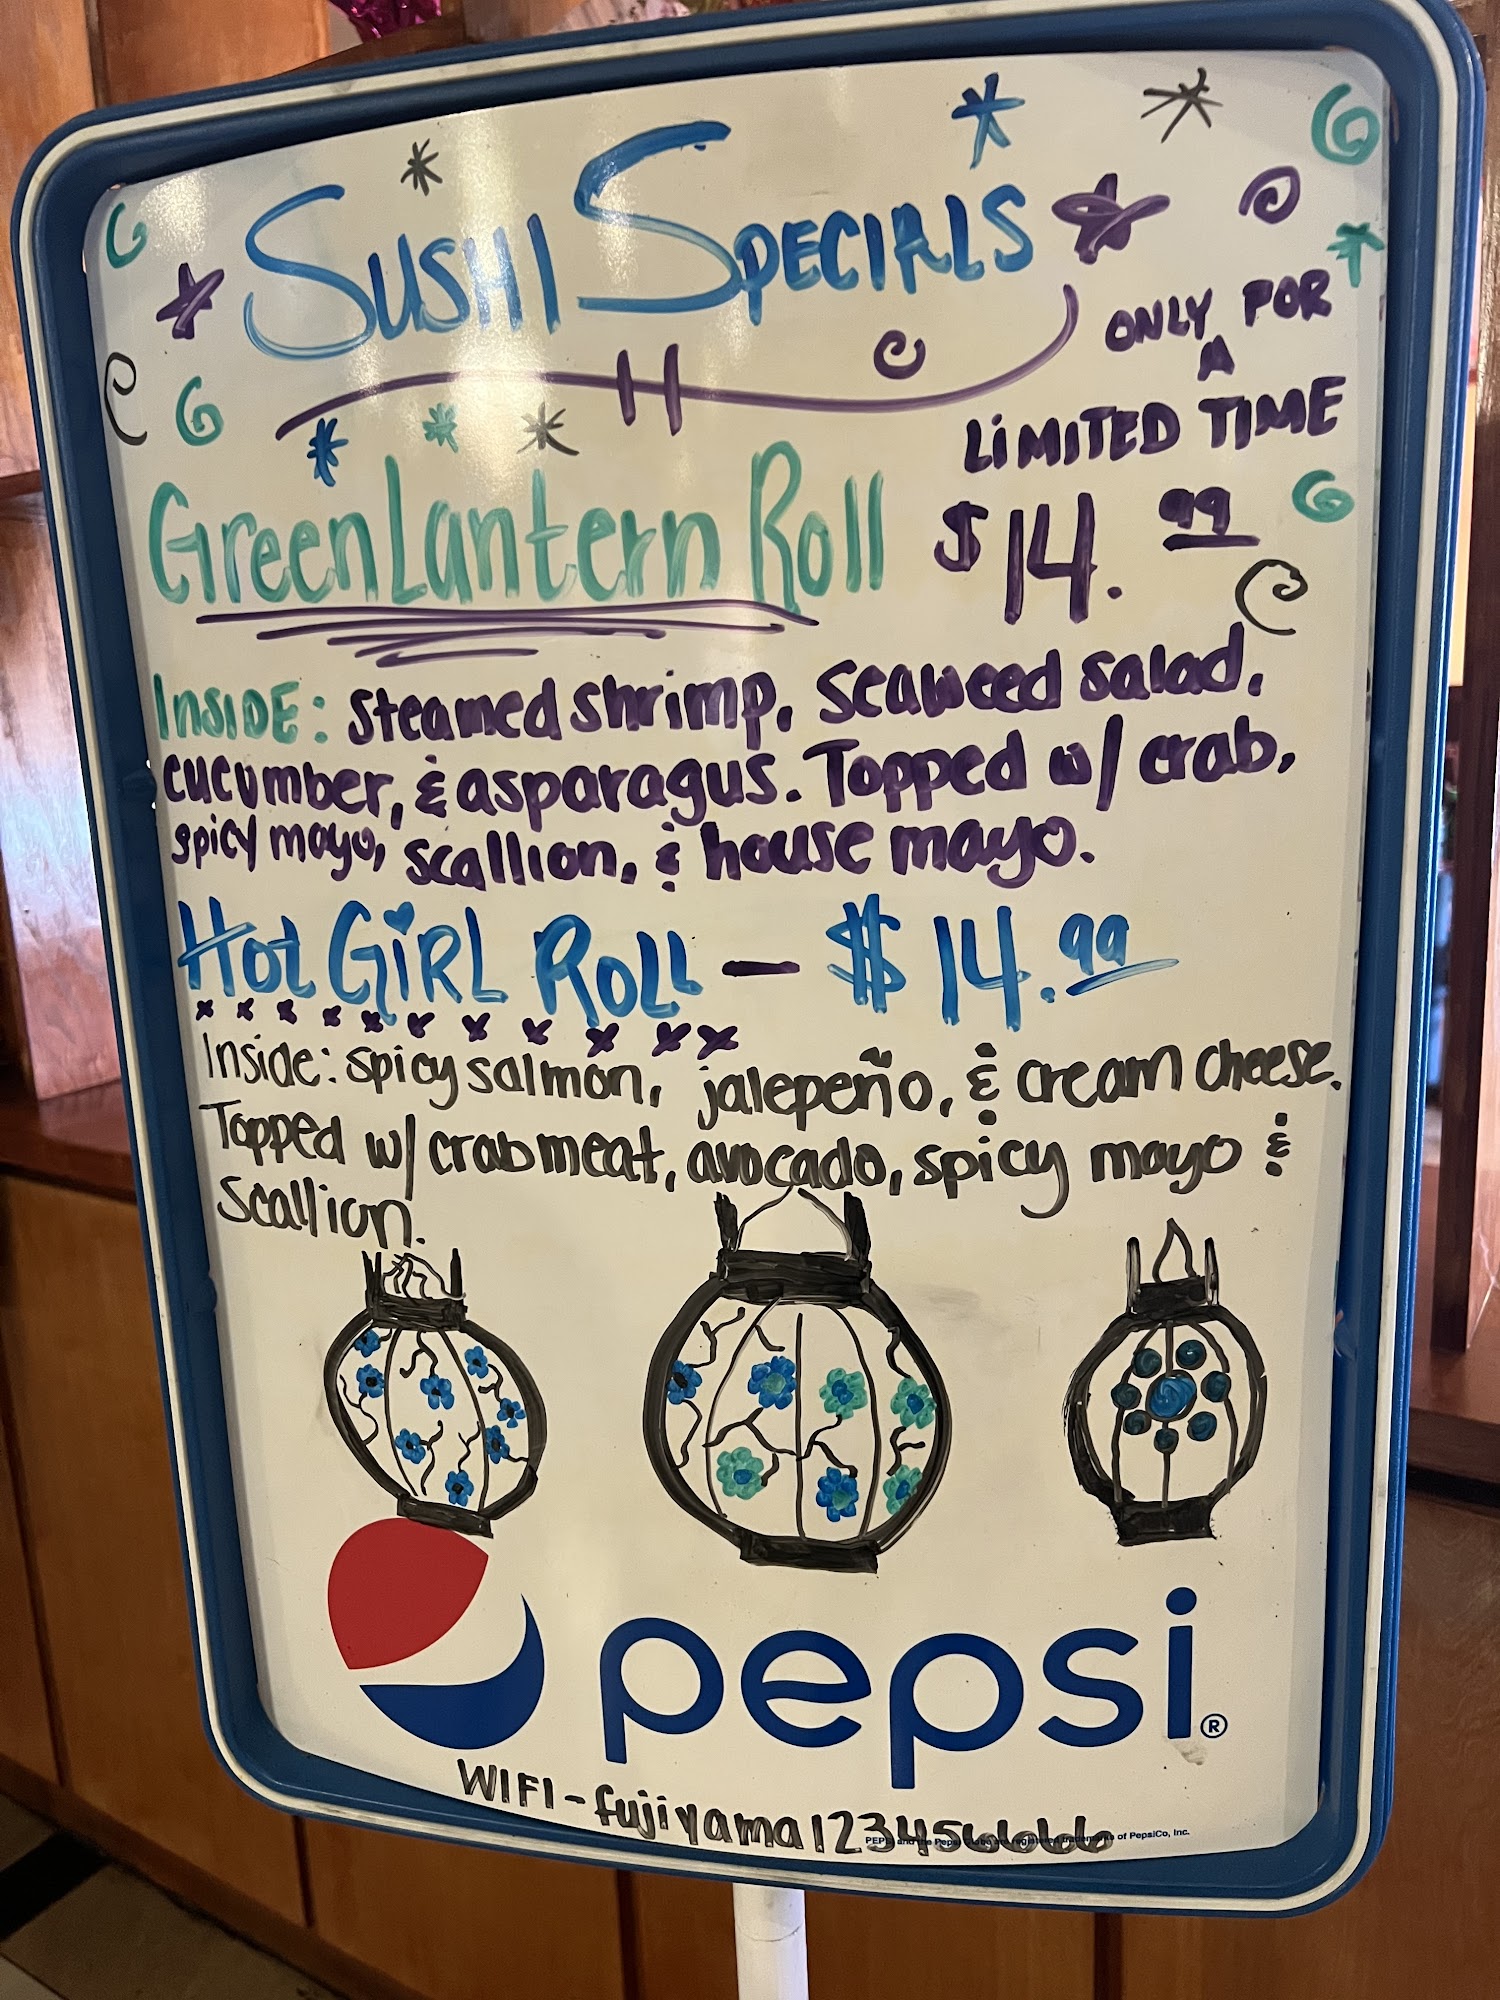 SUSHI SPECIALS
ONLY FOR
A
LIMITED TIME
Green Lantern Roll $14.99
INSIDE: steamed shrimp, seaweed salad,
cucumber, & asparagus. Topped w/ crab,
spicy mayo, scallion, & house mayo.
HOT GiRL ROLL - $14.99
Inside: spicy salmon, jalepeño, & cream cheese.
Topped w/ crabmeat, avocado, spicy mayo &
scallion.
pepsi®
WIFI - fujiyama123456666
PEPSI and the Pepsi Globe are registered trademarks of PepsiCo, Inc.